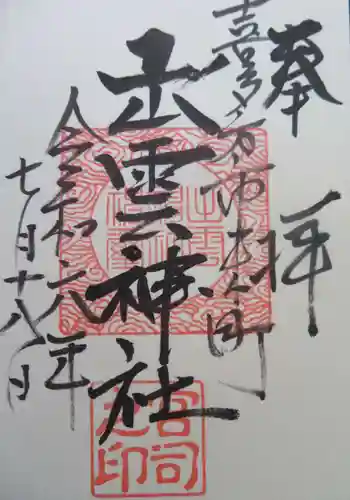 奉拝
喜多方市
町
出雲神社
令和六年
七月十八日
宮司之印